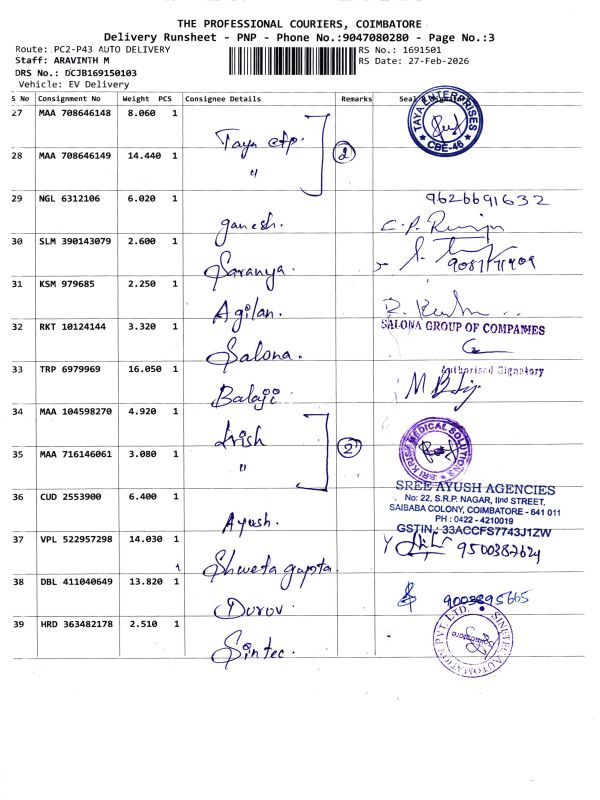 THE PROFESSIONAL COURIERS, COIMBATORE
Delivery Runsheet - PNP - Phone No.:9047080280 - Page No.:3
Route: PC2-P43 AUTO DELIVERY
RS No.: 1691501
Staff: ARAVINTH M
RS Date: 27-Feb-2026
DRS No.: DCJB169150103
Vehicle: EV Delivery
S No Consignment No Weight PCS Consignee Details Remarks Seal &
27 MAA 708646148 8.060 1
Taya etp. 2
TAYA ENTERPRISES
CBE-46
28 MAA 708646149 14.440 1
"
29 NGL 6312106 6.020 1
ganesh.
9626691632
30 SLM 390143079 2.600 1
Saranya.
31 KSM 979685 2.250 1
Agilan.
32 RKT 10124144 3.320 1
Salona.
SALONA GROUP OF COMPANIES
Authorised Signatory
33 TRP 6979969 16.050 1
Balaji
34 MAA 104598270 4.920 1
krish 2
SRI KRISH MEDICAL SOLUTIONS
35 MAA 716146061 3.080 1
"
36 CUD 2553900 6.400 1
Ayush.
SREE AYUSH AGENCIES
No: 22, S.R.P. NAGAR, IInd STREET,
SAIBABA COLONY, COIMBATORE - 641 011
PH : 0422 - 4210019
GSTIN.: 33ACCFS7743J1ZW
37 VPL 522957298 14.030 1
Shweta gupta.
9500387624
38 DBL 411040649 13.820 1
Durov.
9003895665
39 HRD 363482178 2.510 1
Sintec.
SINETEC AUTOMATION PVT. LTD.
Coimbatore